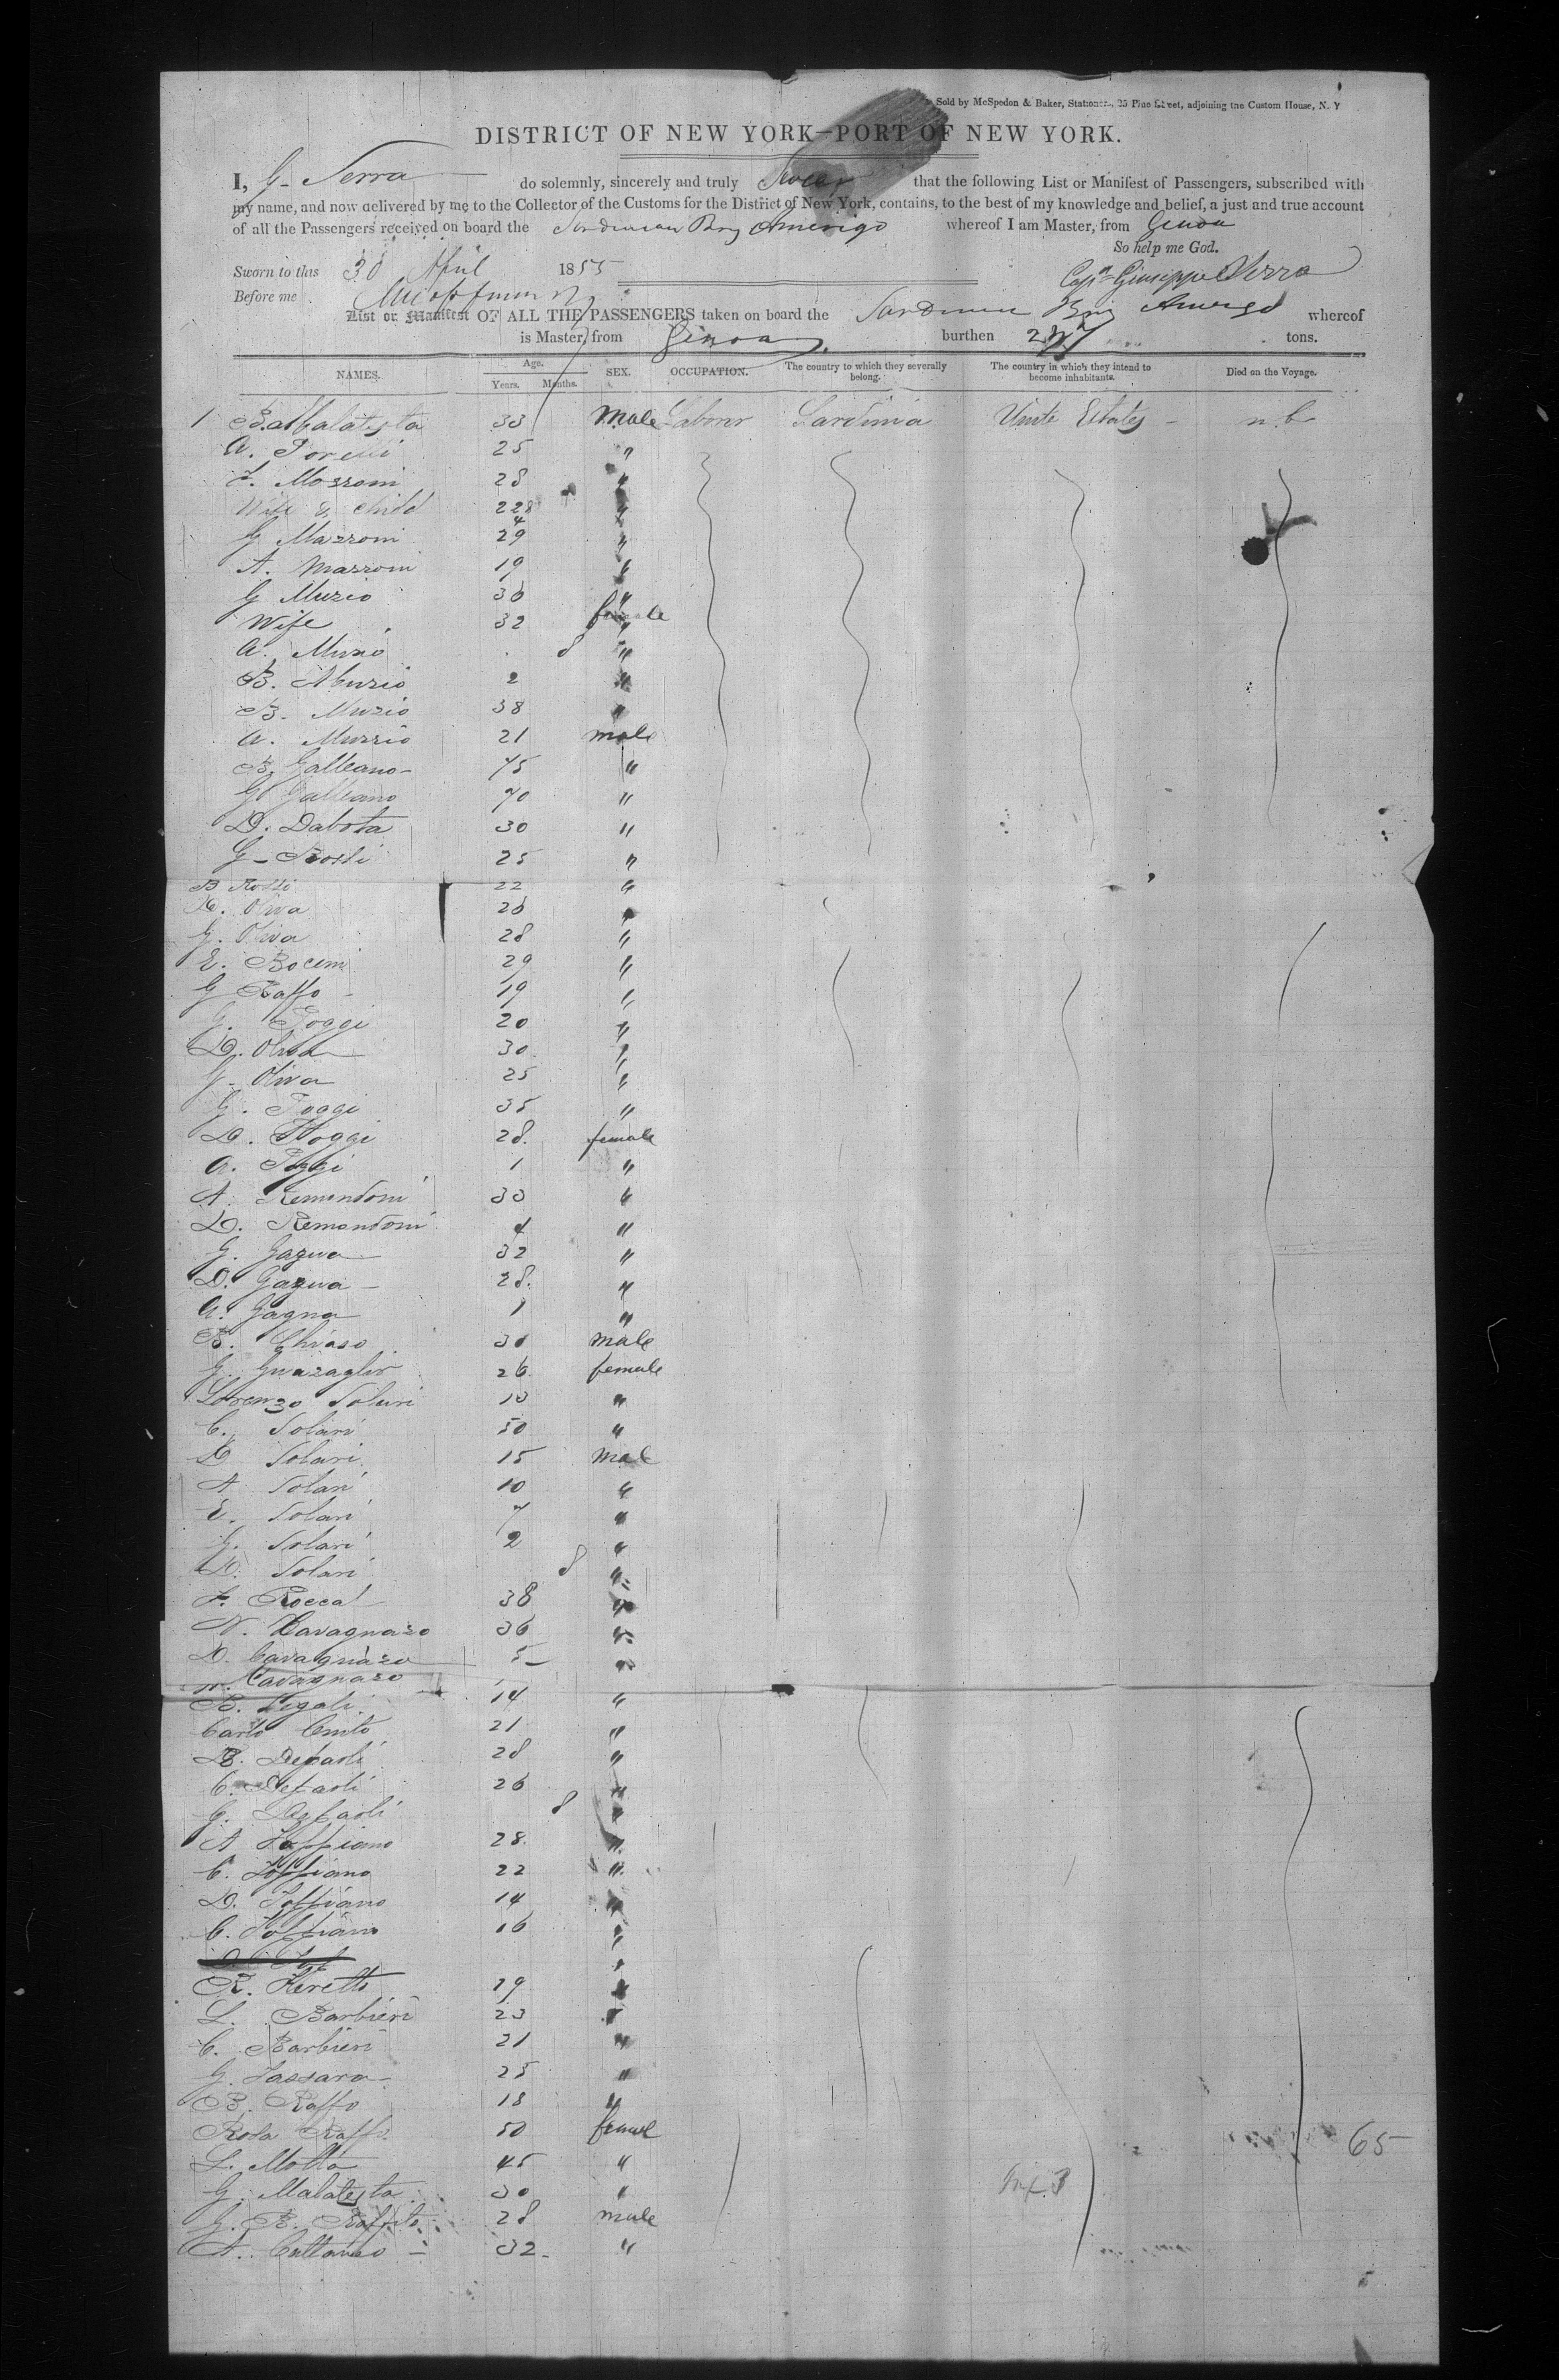 Sold by McSpedon & Baker, Stationers, 25 Pine Street, adjoining the Custom House, N. Y
DISTRICT OF NEW YORK—PORT OF NEW YORK.
I, G. Serra do solemnly, sincerely and truly Swear that the following List or Manifest of Passengers, subscribed with
my name, and now delivered by me to the Collector of the Customs for the District of New York, contains, to the best of my knowledge and belief, a just and true account
of all the Passengers received on board the Sardinian Brig Amerigo whereof I am Master, from Genoa
So help me God.
Sworn to this 30 April 1855
Capn Giuseppe Serra
Before me
List or Manifest OF ALL THE PASSENGERS taken on board the Sardinian Brig Amerigo whereof
is Master, from Genoa burthen tons.
NAMES. Age. Years. Months. SEX. OCCUPATION. The country to which they severally belong. The country in which they intend to become inhabitants. Died on the Voyage.
1 B. Malatesta 33 Male Laborer Sardinia Unite Estates
A. Porelli 25 "
F. Mozzoni 28 "
Wife & Child "
G Mazzoni 29 "
A. Mazzoni 19 "
G Muzio 36 "
Wife 32 female
A. Muzio 8 "
B. Muzio 2 "
B. Muzio 38 "
A. Muzzio 21 male
B. Galleano 45 "
G. Galleano 40 "
D. Dabota 30 "
G - Rossi 25 "
B Rossi 22 "
Oliva 26 "
G. Oliva 28 "
E. Bocem 29 "
G Raffo 19 "
G. Poggi 20 "
D. Oliva 30 "
G - Oliva 25 "
G. Poggi 35 "
D. Poggi 28. female
A. Poggi 1 "
A. Remondoni 33 "
D. Remondoni 4 "
G. Gagna 32 "
D. Gagna 28. "
A. Gagna 1 "
B. Chiaso 30 male
G. Guazaglio 26 female
Lorenzo Solari 10 "
C. Solari 50 "
D Solari 15 mal
A Solari 10 "
E. Solari 7 "
G. Solari 2 "
D. Solari 8 "
F. Rocca 38 "
N. Cavagnaro 36 "
D. Cavagnaro 5 "
Cavagnaro
B. Rigali 14 "
Carlo 21 "
B. Depaoli 28 "
C. Depaoli 26 "
G. Depaoli 8 "
A Soffiano 28. "
C. Soffiano 22 "
D. Soffiano 14 "
C. Soffiano 16 "
R. Feretti 29 "
L. Barbieri 23 "
C. Barbieri 21 "
G. Sassara 25 "
B. Raffo 18 "
Rosa Raffo 50 female
L. Motta 45 " 65
G. Malatesta 30 "
G. B. 28 male
A. Cattaneo 32 "